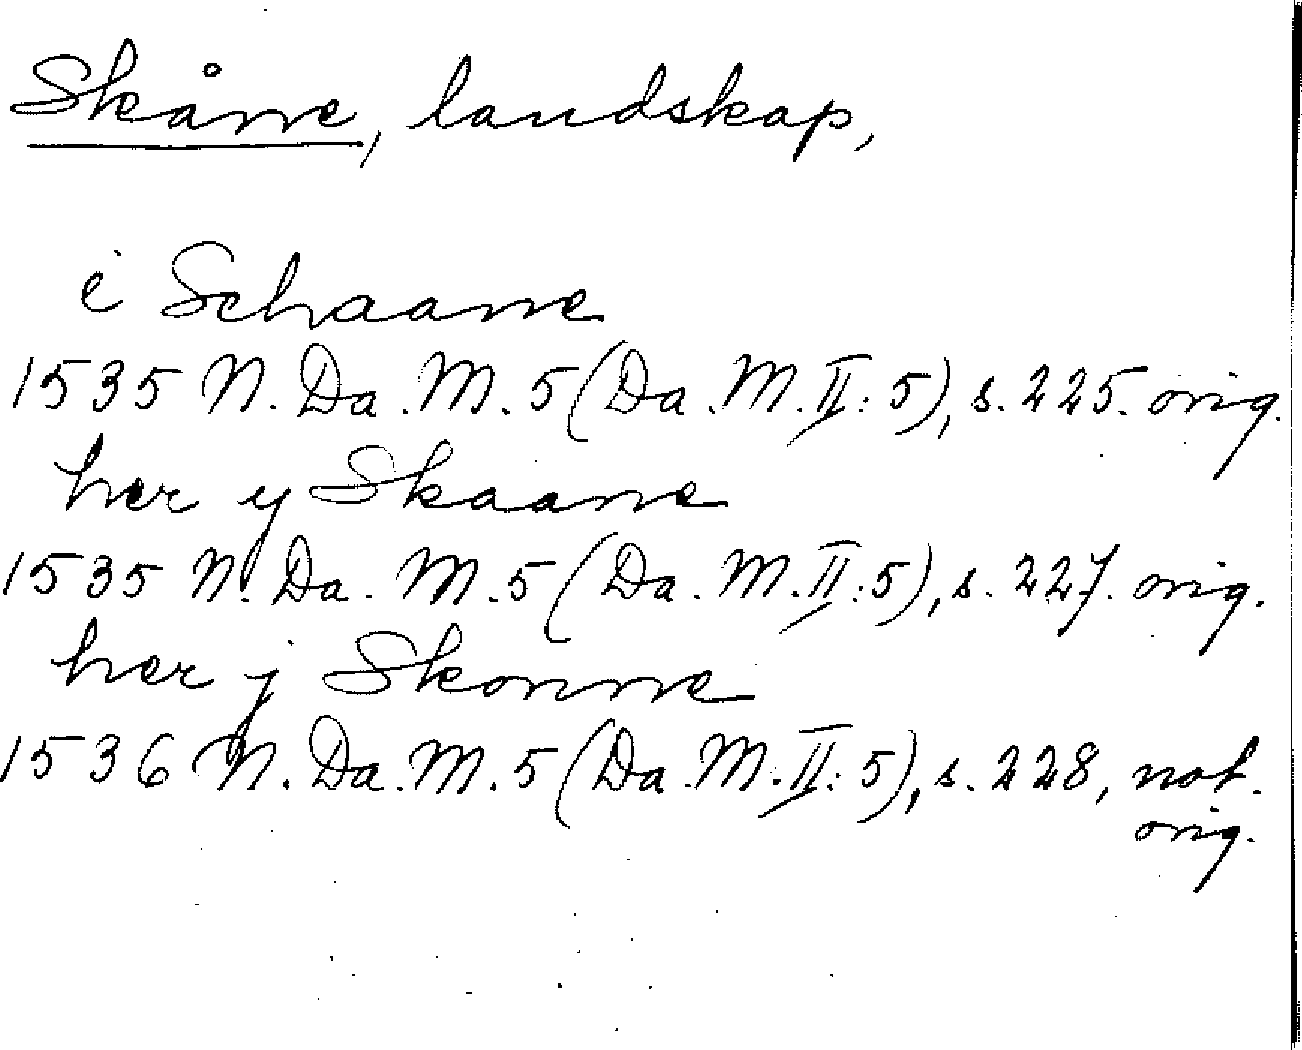 Skåne, landskap,
i Schaane
1535 N. Da. M. 5 (Da. M. II: 5), s. 225. orig.
her y Skaane
1535 N. Da. M. 5 (Da. M. II: 5), s. 227. orig.
her j Skonne
1536 N. Da. M. 5 (Da. M. II: 5), s. 228, not.
orig.